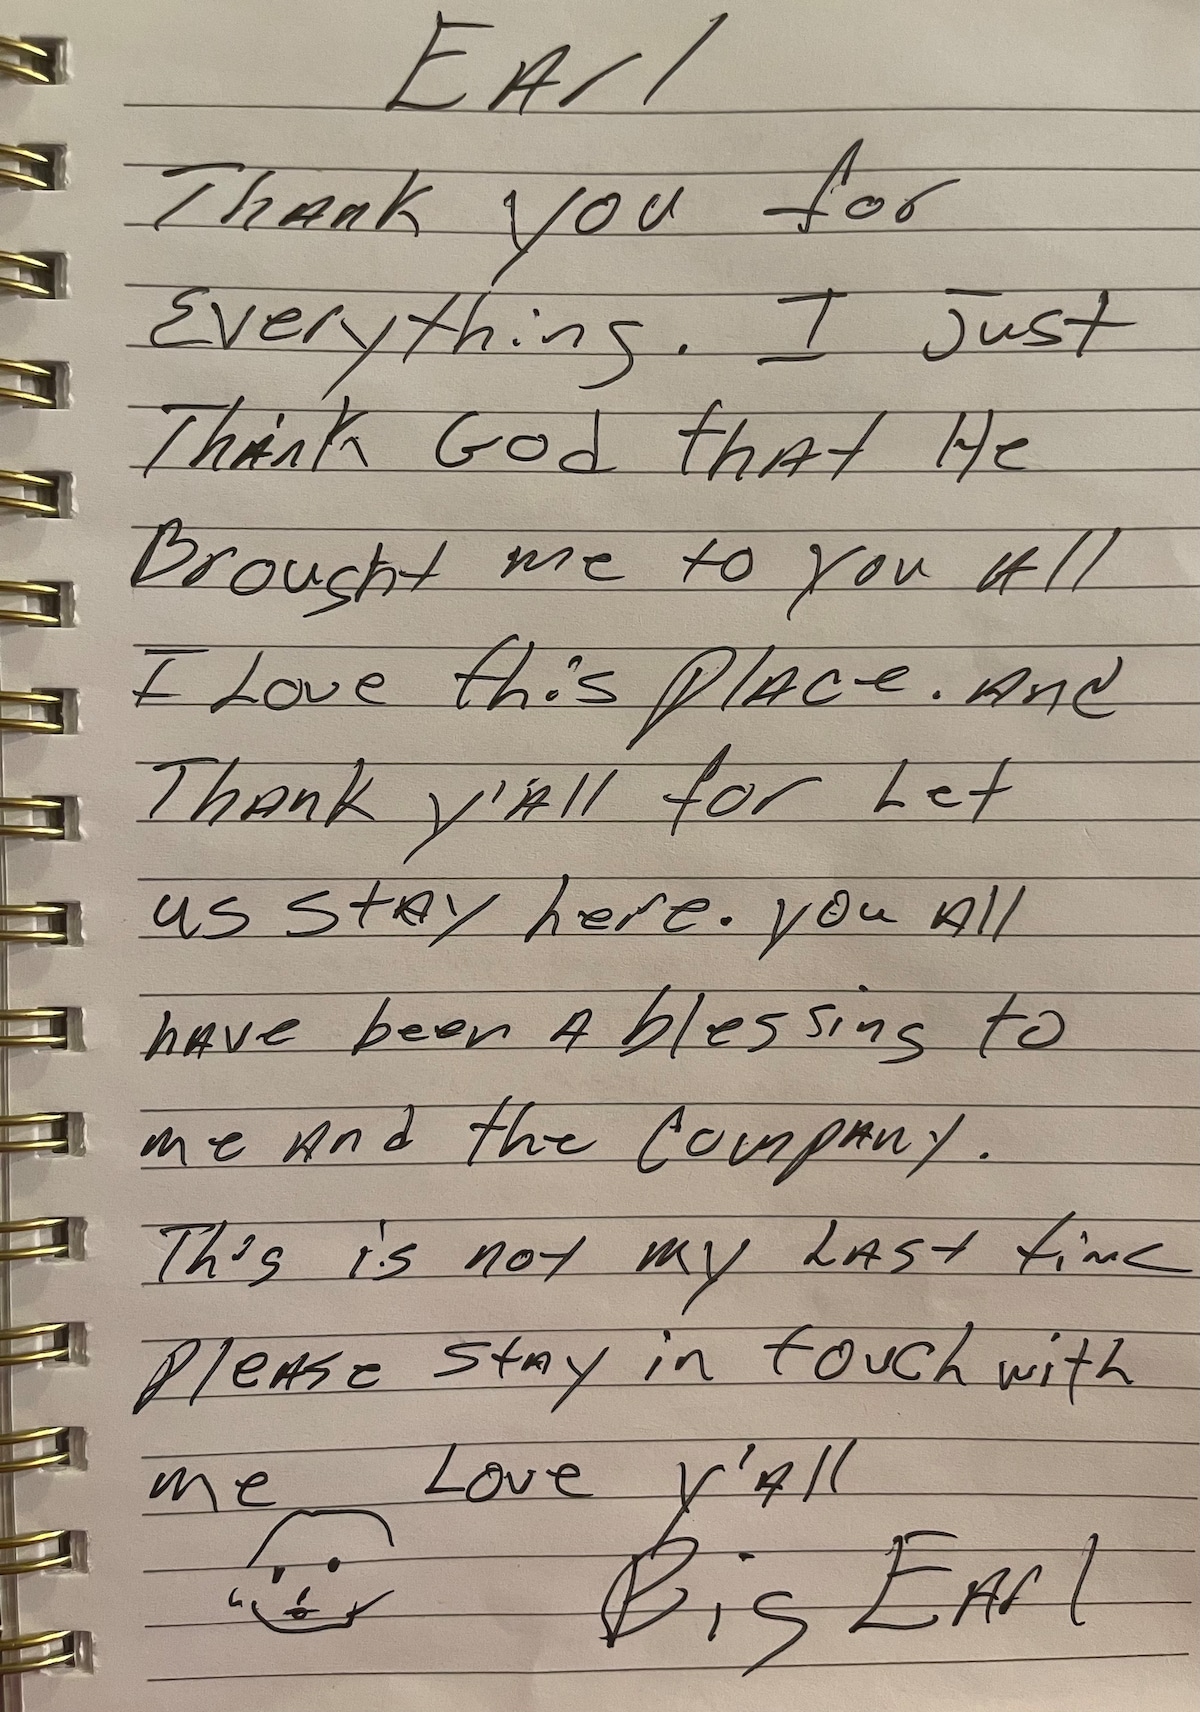 EArl
Thank you for
Everything. I Just
Think God that He
Brought me to you All
I Love this place. And
Thank y'all for Let
us stay here. you All
have been A blessing to
me And the Company.
This is not my Last time
please stay in touch with
me Love y'all
Big EArl